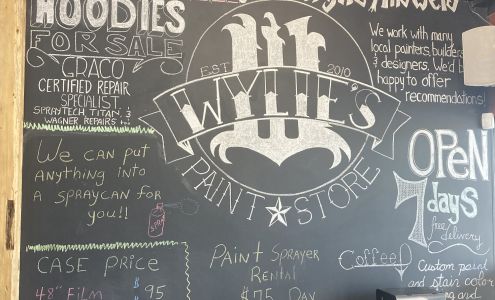 HOODIES
FOR SALE
GRACO
CERTIFIED REPAIR
SPECIALIST
SPRAYTECH, TITAN, &
WAGNER REPAIRS
We can put
anything into
a spraycan for
you!!
CASE PRICE
48" Film
$95
EST
2010
W
WYLIE'S
PAINT STORE
Paint Sprayer
Rental
$75 Day
We work with many
local painters, builders
& designers. We'd be
happy to offer
recommendations!
OPEN
7 days
free delivery
Coffee
Custom paint
and stain color
and